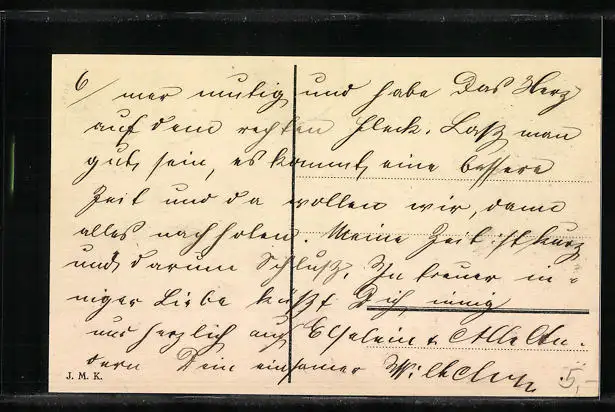 6/
mer mutig und habe Das Herz
auf dem rechten Fleck. Lasz man
gut sein, es kommt eine bessere
Zeit und da wollen wir, dann
alles nachholen. Meine Zeit ist kurz
und darum Schlusz. In treuer in=
niger Liebe küszt Dich innig
herzlich auf Elselein & Alle An.
dern Dein einsamer
J. M. K. 5,-